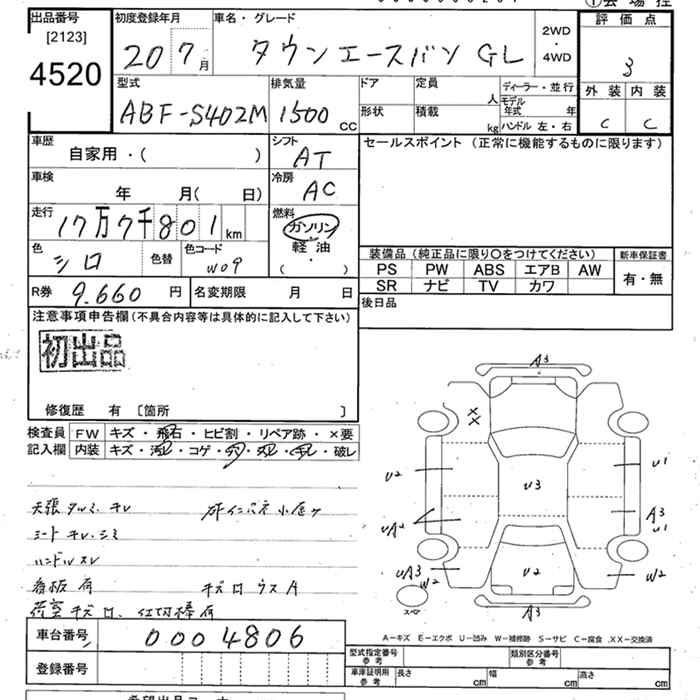 出品番号
[2123]
4520
初度登録年月
20 7月
車名・グレード
タウンエースバン GL
2WD
・
4WD
評価点
3
外装 内装
C C
型式
ABF-S402M
排気量
1500 cc
ドア
形状
定員 人
積載 kg
ディーラー・並行
モデル年式 年
ハンドル 左・右
車歴
自家用・( )
シフト
AT
セールスポイント (正常に機能するものに限ります)
車検
年 月( 日)
冷房
AC
走行
17万7千801km
燃料
ガソリン
軽油
・
( )
色
シロ
色替
色コード
W09
装備品(純正品に限り○をつけてください)
新車保証書
PS PW ABS エアB AW
有・無
SR ナビ TV カワ
R券 9.660 円
名変期限 月 日
後日品
注意事項申告欄(不具合内容等は具体的に記入して下さい)
初出品
修復歴 有 [箇所 ]
検査員 FW キズ・飛石・ヒビ割・リペア跡・×要
記入欄 内装 キズ・汚レ・コゲ・穴・
・破レ
天張タルミ、キレ
シートキレ・シミ
ハンドルスレ
看板有
キズロウスA
荷室キズロ、仕切棒有
A3
XX
U2
U1
U3
UA2
A3
U1
UA3
W2
U2
W2
スペア
A3
A−キズ E−エクボ U−凹み W−補修跡 S−サビ C−腐食 .XX−交換済
車台番号 0004806
登録番号
型式指定番号
参考
類別区分番号
参考
車庫証明用
参考
長さ cm
幅 cm
高さ cm